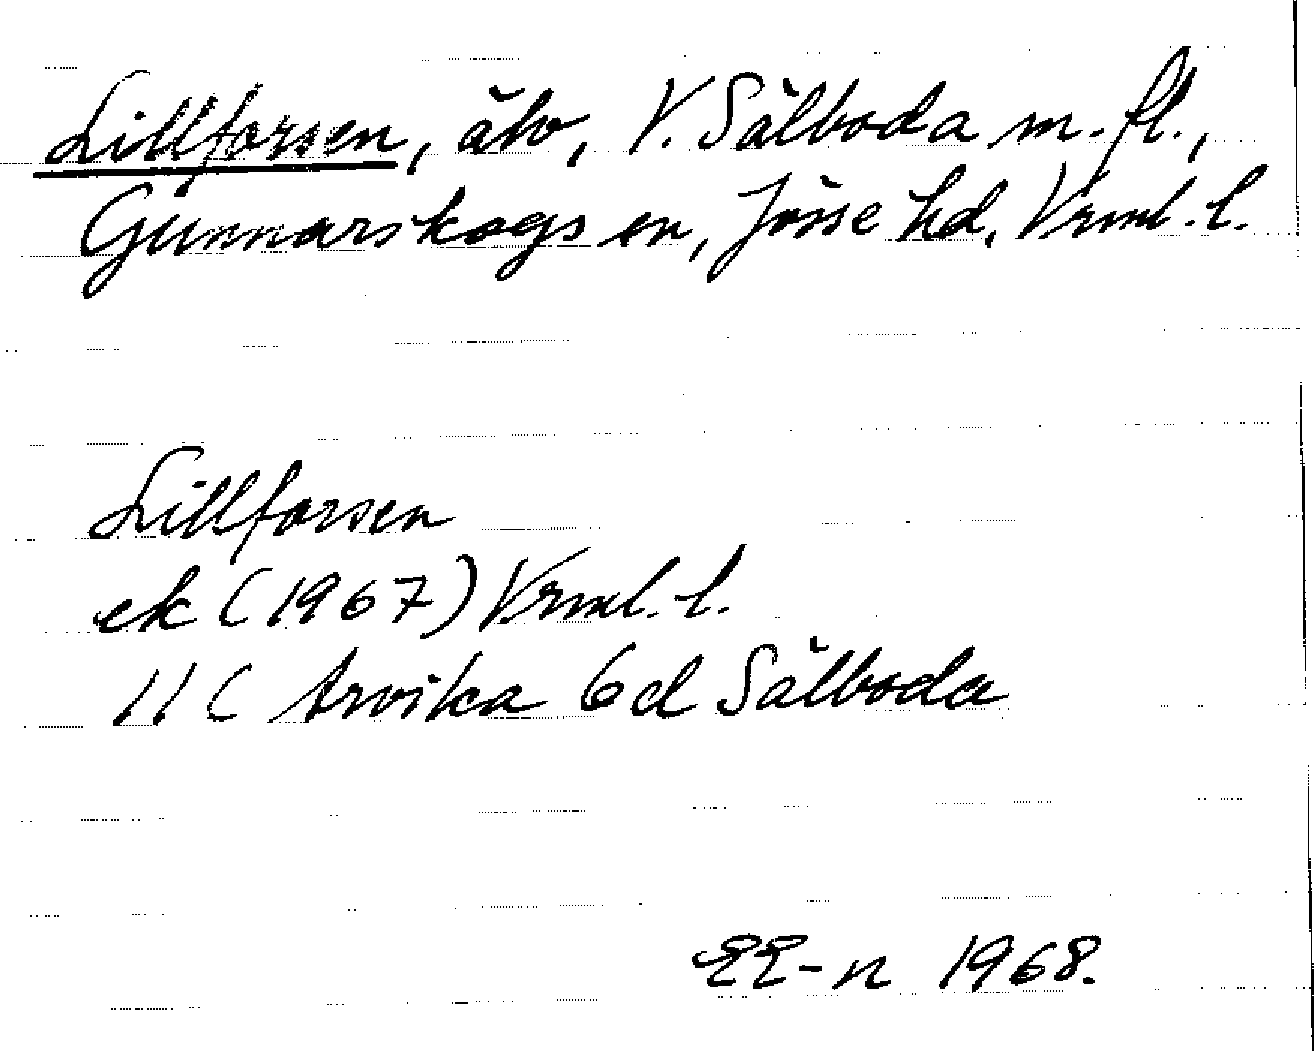 Lillforsen, älv, V. Sälboda m. fl.,
Gunnarskogs sn, Jösse hd, Vrml. l.
Lillforsen
ek (1967) Vrml. l.
11 C Arvika 6d Sälboda
EE-n 1968.